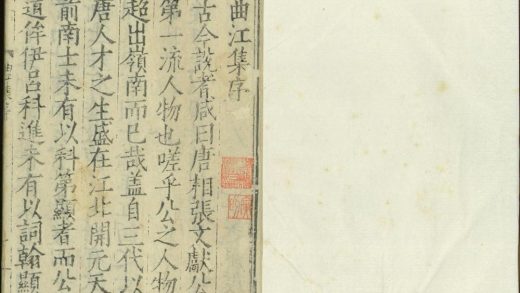 曲江集序
古今說者咸曰唐相張文獻公
第一流人物也嗟乎公之人物
超出嶺南而已哉盖自三代以
唐人才之生盛在江北開元天
前南士未有以科第顯者而公
道侔伊吕科進未有以詞翰顯